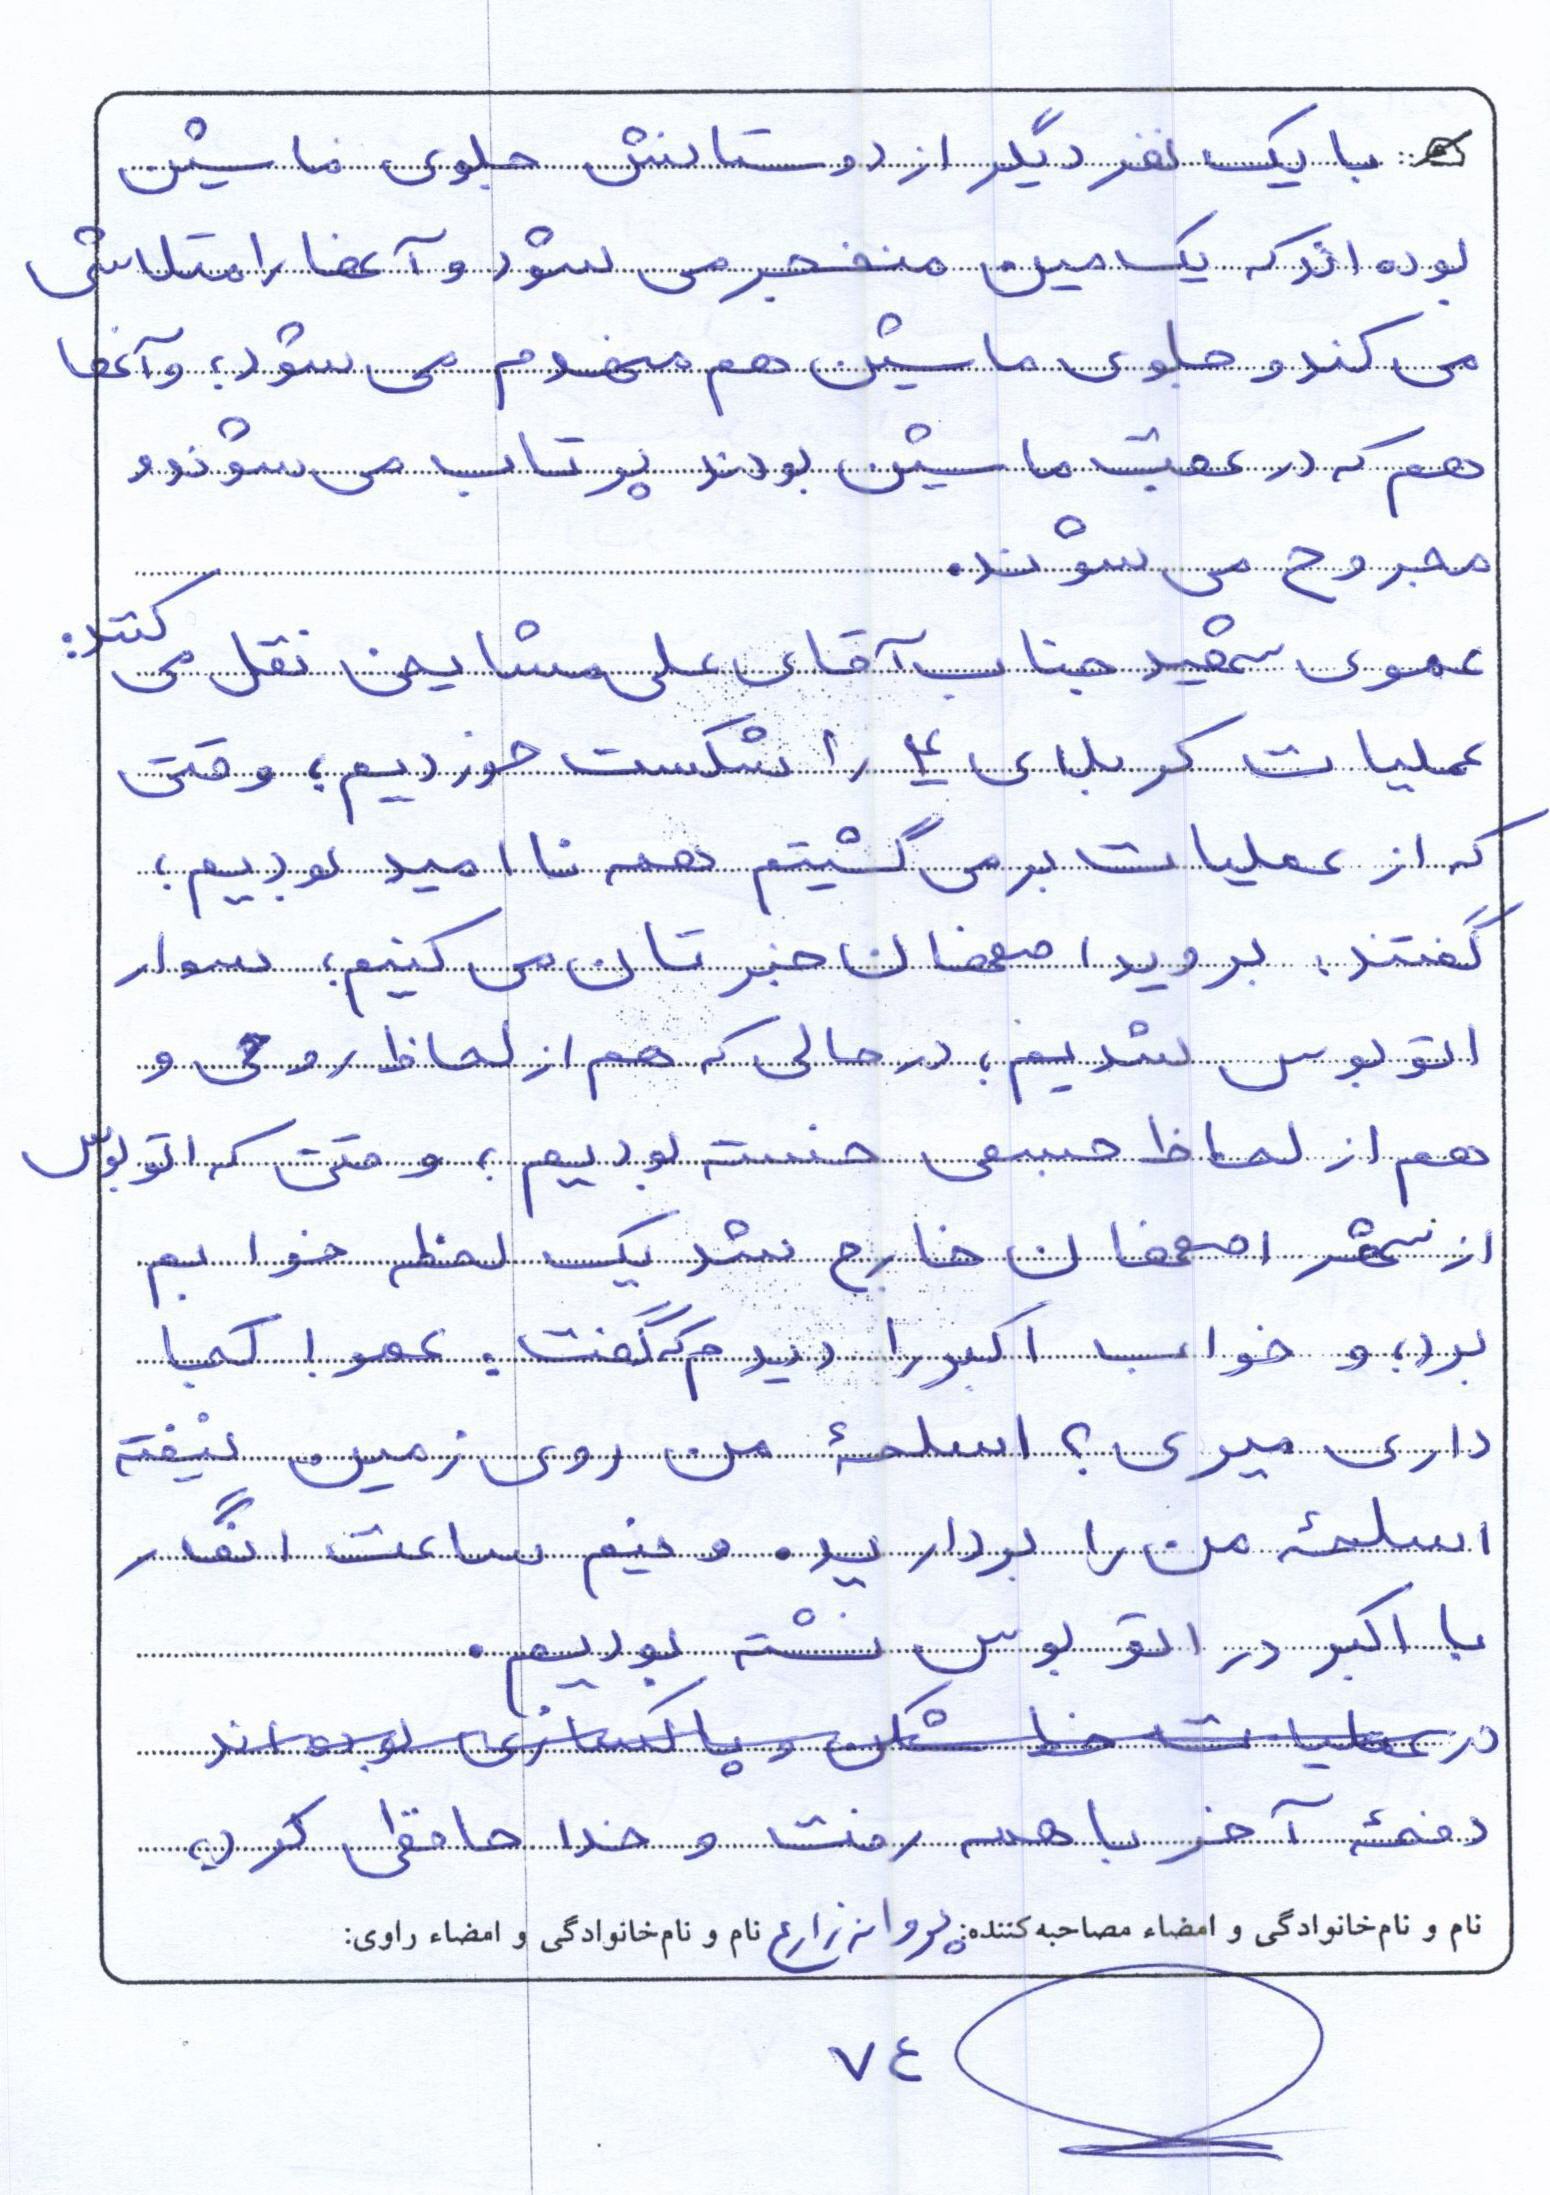 با یک نفر دیگر از دوستانش جلوی ماسیش
بوده اند که یک مین منفجر می شود و آنها را متلاشی
می کند و جلوی ماسیش هم منهدم می شود؛ و آنها
هم که در عقب ماسیش بودند پرتاب می شوند و
مجروح می شوند.
عموی شهید جناب آقای علی مشایخی نقل می کنند:
عملیات کربلای ۴ را شکست خوردیم؛ وقتی
که از عملیات بر می گشتیم همه نا امید بودیم؛
گفتند: بروید، اصفهان خبرتان می کنیم؛ سوار
اتوبوس شدیم؛ در حالی که هم از لحاظ روحی و
هم از لحاظ جسمی خسته بودیم؛ وقتی که اتوبوس
از شهر اصفهان خارج شد یک لحظه خوابم
برد؛ و خواب اکبر را دیدم که گفت: عمو! کجا
داری میری؟ اسلحۀ من روی زمین نیفته
اسلحۀ من را بردارید. و نیم ساعت انگار
با اکبر در اتوبوس نشته بودیم.
در عملیات خط شکن و پاکسازی بوده اند
دفعۀ آخر با همه رفت و خدا حافظی کرد؛
نام و نام‌خانوادگی و امضاء مصاحبه‌کننده: پروانه زارع نام و نام‌خانوادگی و امضاء راوی:
٧٤